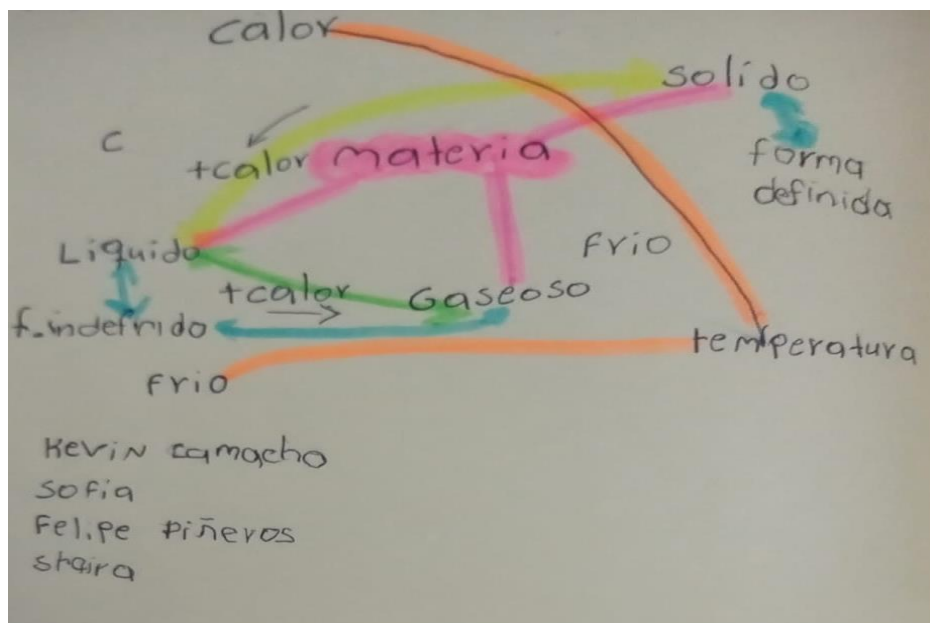 calor
solido
c
+calor materia
forma
definida
Liquido
frio
+calor Gaseoso
f.indefinido
temperatura
frio
Kevin camacho
sofia
Felipe Piñeros
shaira